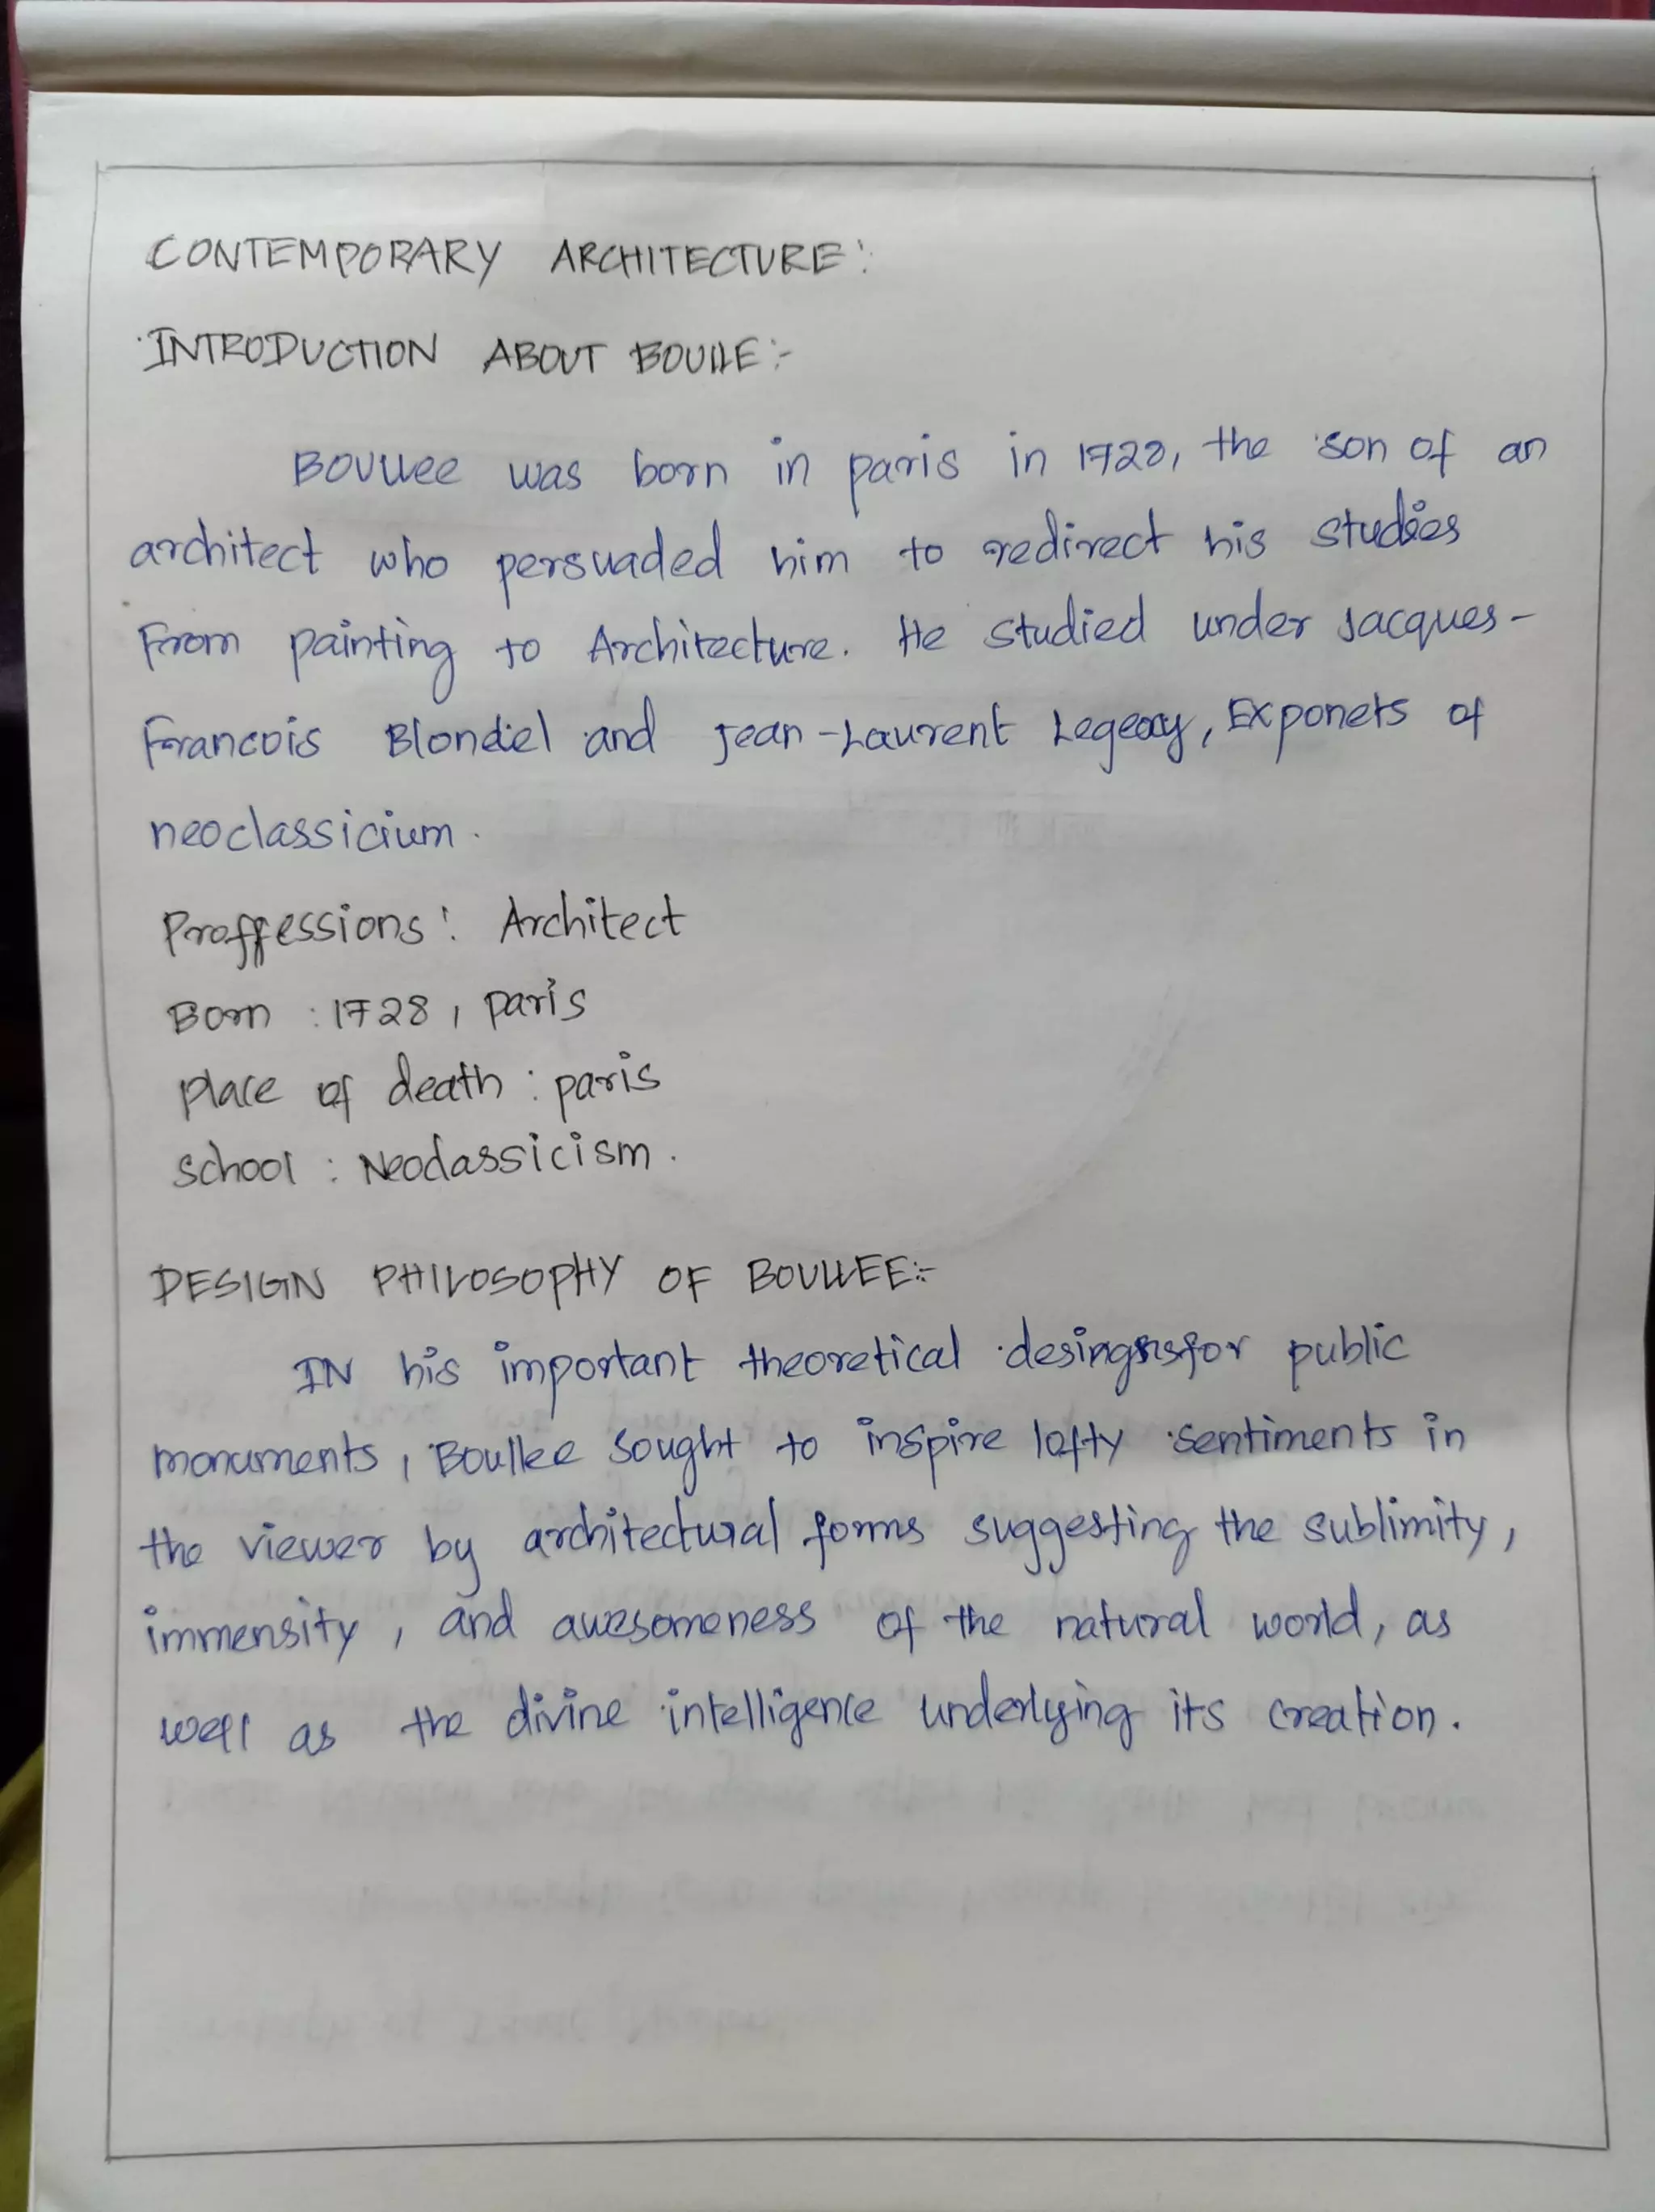 CONTEMPORARY ARCHITECTURE:
INTRODUCTION ABOUT BOULLE:-
Boullee was born in paris in 1728, the son of an
architect who persuaded him to redirect his studies
From painting to Architecture. He studied under Jacques-
Francois Blondel and Jean-Laurent Legeay, Exponets of
neoclassicium.
Proffessions: Architect
Born : 1728, paris
place of death : paris
school : Neoclassicism.
DESIGN PHILOSOPHY OF BOULLEE:-
IN his important theoretical desingns for public
monuments, Boullee sought to inspire lofty sentiments in
the viewer by architectural forms suggesting the sublimity,
immensity, and awesomeness of the natural world, as
well as the divine intelligence underlying its creation.